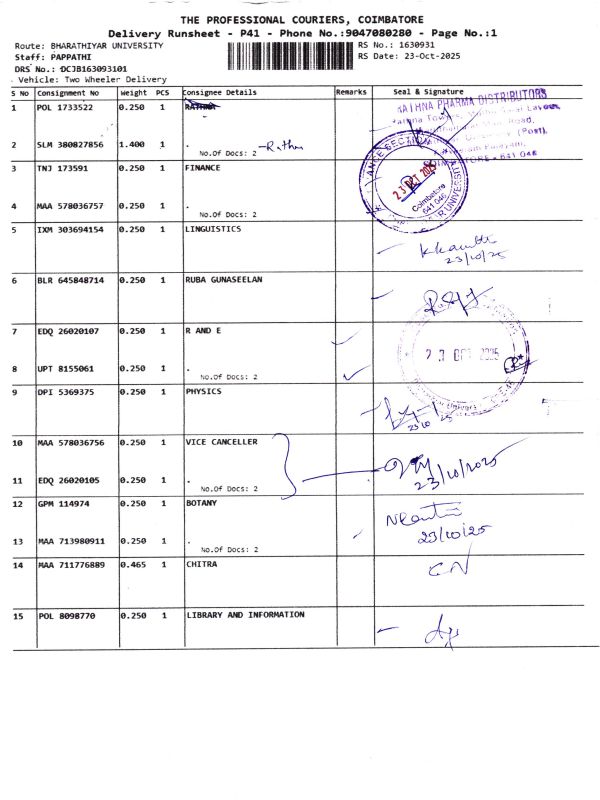 THE PROFESSIONAL COURIERS, COIMBATORE
Delivery Runsheet - P41 - Phone No.:9047080280 - Page No.:1
Route: BHARATHIYAR UNIVERSITY RS No.: 1630931
Staff: PAPPATHI RS Date: 23-Oct-2025
DRS No.: DCJB163093101
Vehicle: Two Wheeler Delivery
S No Consignment No Weight PCS Consignee Details Remarks Seal & Signature
1 POL 1733522 0.250 1 RATHNA
RATHNA PHARMA DISTRIBUTORS
2 SLM 380827856 1.400 1 .
No.Of Docs: 2 -Rathna
3 TNJ 173591 0.250 1 FINANCE
23 OCT 2025
Coimbatore
641 046
4 MAA 578036757 0.250 1 .
No.Of Docs: 2
5 IXM 303694154 0.250 1 LINGUISTICS
23/10/25
6 BLR 645848714 0.250 1 RUBA GUNASEELAN
7 EDQ 26020107 0.250 1 R AND E
23 OCT 2025
8 UPT 8155061 0.250 1 .
No.Of Docs: 2
9 DPI 5369375 0.250 1 PHYSICS
23/10/25
10 MAA 578036756 0.250 1 VICE CANCELLER
23/10/2025
11 EDQ 26020105 0.250 1 .
No.Of Docs: 2
12 GPM 114974 0.250 1 BOTANY
23/10/25
13 MAA 713980911 0.250 1 .
No.Of Docs: 2
14 MAA 711776889 0.465 1 CHITRA
CN
15 POL 8098770 0.250 1 LIBRARY AND INFORMATION